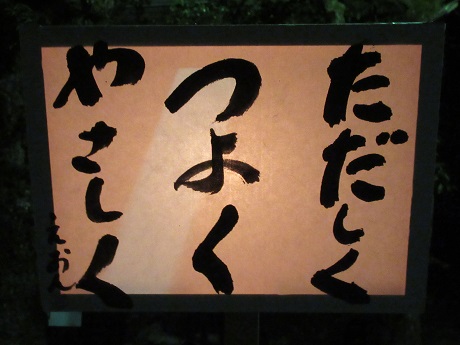 ただしく
つよく
やさしく